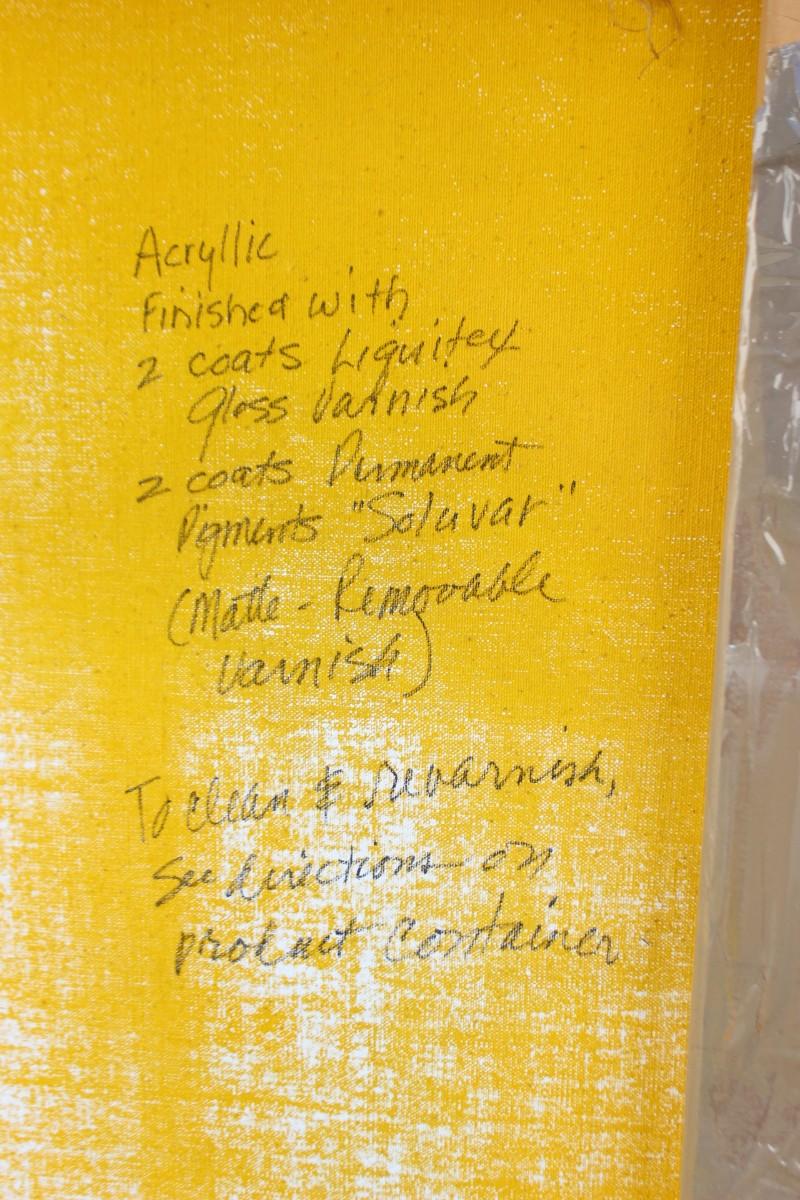 Acryllic
Finished with
2 coats Liquitex
Gloss Varnish
2 coats Permanent
Pigments "Soluvar"
(Matte - Removable
Varnish)
To clean & revarnish,
See directions on
product Container